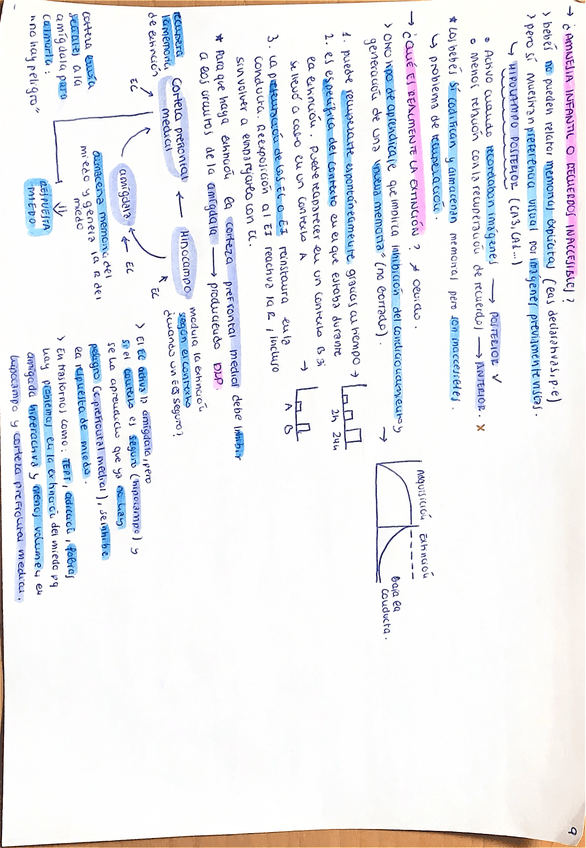 9
→ ¿AMNESIA INFANTIL O RECUERDOS INACCESIBLES?
> bebés no pueden relatar memorias explícitas (eas declarativas, p.e)
> pero sí muestran preferencia visual por imágenes previamente vistas.
↳ HIPOCAMPO POSTERIOR (CA3, CA1...)
• Activo cuando recordaban imágenes → POSTERIOR ✓
• Menos relación con la recuperación de recuerdos → ANTERIOR. X
* Los bebés sí codifican y almacenan memorias pero son inaccesibles.
↳ problema de recuperación
→ ¿QUÉ ES REALMENTE LA EXTINCIÓN? ≠ olvido.
> Otro tipo de aprendizaje que implica inhibición del condicionamiento y
generación de una "nueva memoria" (no borrado). →
Adquisición Extinción
Baja ea conducta.
1. puede recuperarse espontáneamente gracias al tiempo →
2h 24h
2. es específica del contexto en el que estaba durante
ea extinción. Puede reaparecer en un contexto B si
se llevó a cabo en un contexto A →
A B
3. La presentación de los EC o EI reinstaura en la
conducta. Reexposición al EI reactiva la R, incluso
sin volver a emparejarlo con EC.
* Para que haya extinción ea corteza prefrontal medial debe inhibir
a eos circuitos de la amígdala → produciendo DLP.
recupera
la memoria
de extinción
Corteza prefrontal
medial
← Hipocampo
modula la extinción
según el contexto
¿cuándo un EC es seguro?
EC
EC
EC
amígdala
almacena memoria del
miedo y genera la R del
miedo
Corteza envía
señales a la
amígdala para
calmarla:
"no hay peligro"
RESPUESTA
MIEDO
> El EC activa la amígdala, pero
si el contexto es seguro (hipocampo) y
se ha aprendido que ya no hay
peligro (c. prefrontal medial), se inhibe
ea respuesta de miedo.
> En trastornos como: TEPT, adicción, fobias
hay problemas en la extinción del miedo pq
amígdala hiperactiva y menos volumen en
hipocampo y corteza prefrontal medial.